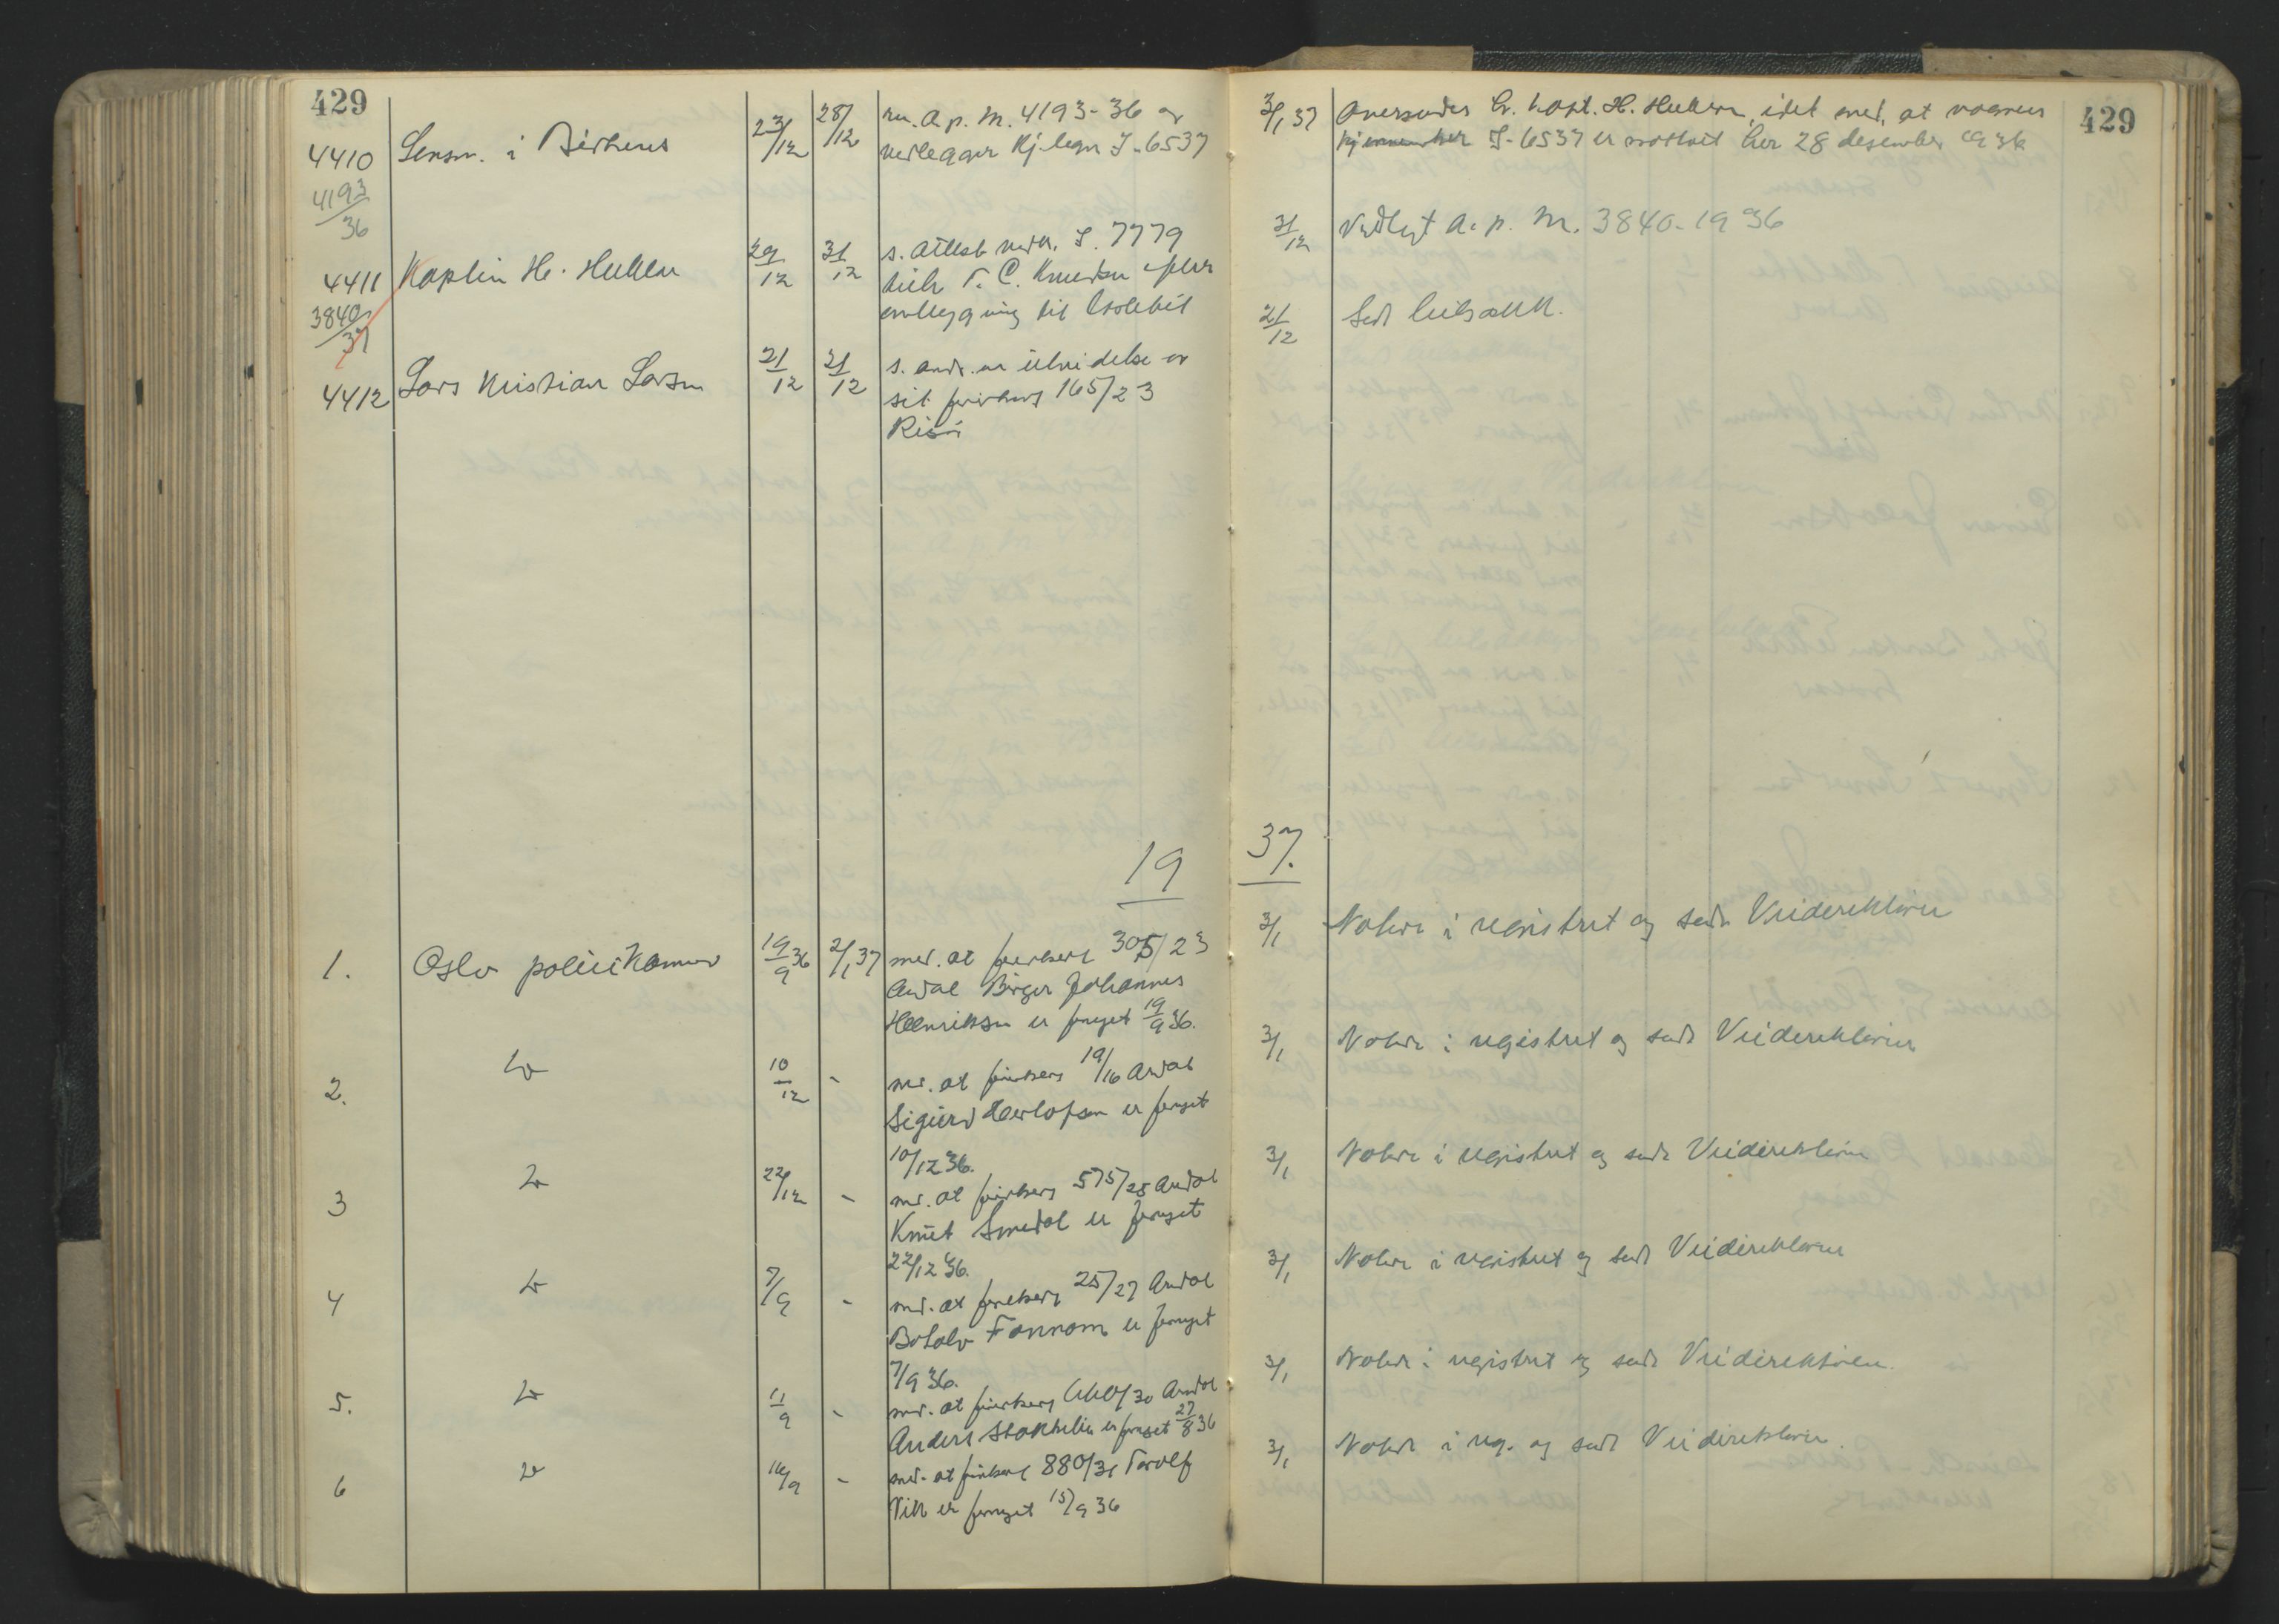 429
4410 Lensm. i Birkenes 23/12 28/12 A.p.M. 4193-36 og
vedlegger kj.tegn I-6537
4193/36
4411 Kaptein H. 29/12 31/12 s. attest vedr. I. 7779
T. C. Knudsen
omlegging til
3840/37
4412 Lars Kristian Larsen 21/12 21/12 s. andr. om utvidelse av
sit førerbevis 165/23
Risør
19
1. Oslo politikammer 19/9 36 2/1 37 med. at førerbevis 305/23
Arendal Birger Johannes
Henriksen er fornyet 19/9 36.
2. Do 10/12 - med. at førerbevis 19/16 Arendal
Sigurd Herlofsen er fornyet
10/12 36.
3 Do 22/12 - med. at førerbevis 575/25 Arendal
Knut Smedal er fornyet
22/12 36.
4 Do 7/9 - med. at førerbevis 25/27 Arendal
er fornyet
7/9 36.
5. Do 11/9 - med. at førerbevis /30 Arendal
Anders er fornyet 27/8 36
6 Do 16/9 - med. at førerbevis 880/31 Torolf
Vik er fornyet 15/9 36
429
3/1 37 Oversendes hr. kapt. H. idet med. at vognens
I-6537 er mottatt her 28 desember 1936
31/12 Vedlagt A.p.M. 3840-1936
21/12 Sendt
37.
3/1 Notert i registret og sendt Veidirektøren
3/1 Notert i registret og sendt Veidirektøren
3/1 Notert i registret og sendt Veidirektøren
3/1 Notert i registret og sendt Veidirektøren
3/1 Notert i registret og sendt Veidirektøren.
3/1 Notert i reg. og sendt Veidirektøren.